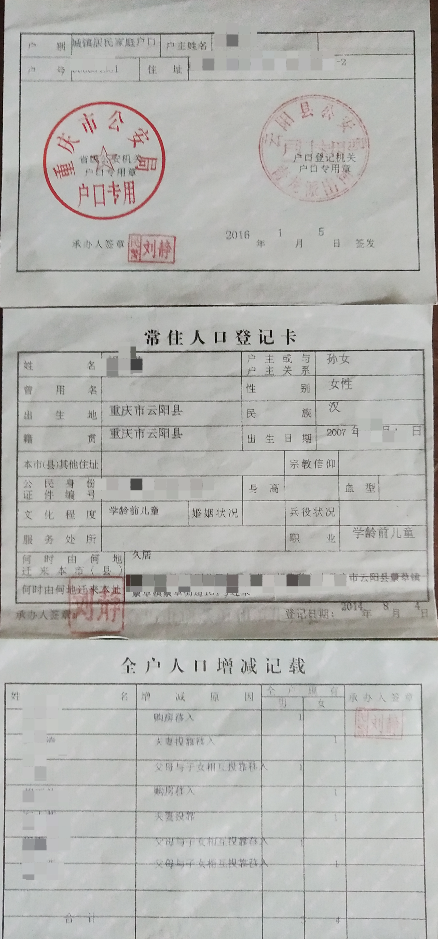 户 别 城镇居民家庭户口 户主姓名
户 号 住 址 -2
重庆市公安局
户口专用
户口专用章
云阳县公安
户口登记机关
户口专用章
承办人签章 刘静 2016 年 1 月 5 日 签发
常住人口登记卡
姓 名 户主或与户主关系 孙女
曾用名 性 别 女性
出生地 重庆市云阳县 民 族 汉
籍 贯 重庆市云阳县 出生日期 2007 年 月 日
本市(县)其他住址 宗教信仰
公民身份证件编号 身 高 血 型
文化程度 学龄前儿童 婚姻状况 兵役状况
服务处所 职 业 学龄前儿童
何时由何地迁来本市(县) 久居
何时由何地迁来本址 市云阳县
承办人签章 刘静 登记日期: 2014 年 8 月 4
全户人口增减记载
姓 名 增减原因 全户现有 男 女 承办人签章
购房移入 1 刘静
夫妻投靠移入 1
父母与子女相互投靠移入 1
购房移入 1
夫妻投靠 1
父母与子女相互投靠移入 1
父母与子女相互投靠移入 1
合 计 4